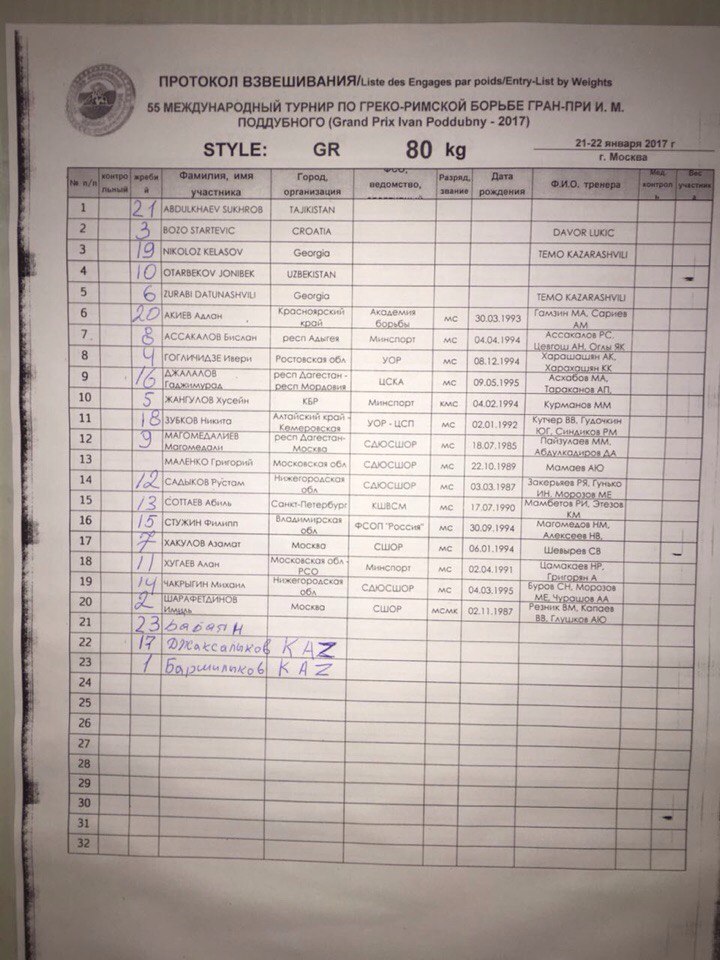 ПРОТОКОЛ ВЗВЕШИВАНИЯ/Liste des Engages par poids/Entry-List by Weights
55 МЕЖДУНАРОДНЫЙ ТУРНИР ПО ГРЕКО-РИМСКОЙ БОРЬБЕ ГРАН-ПРИ И. М.
ПОДДУБНОГО (Grand Prix Ivan Poddubny - 2017)
STYLE: GR 80 kg
21-22 января 2017 г
г. Москва
№ п/п контрольный жребий Фамилия, имя участника Город, организация ФСО, ведомство, Разряд, звание Дата рождения Ф.И.О. тренера Мед. контроль Вес участника
1 21 ABDULKHAEV SUKHROB TAJIKISTAN
2 3 BOZO STARTEVIC CROATIA DAVOR LUKIC
3 19 NIKOLOZ KELASOV Georgia TEMO KAZARASHVILI
4 10 OTARBEKOV JONIBEK UZBEKISTAN
5 6 ZURABI DATUNASHVILI Georgia TEMO KAZARASHVILI
6 20 АКИЕВ Адлан Красноярский край Академия борьбы мс 30.03.1993 Гамзин МА, Сариев АМ
7 8 АССАКАЛОВ Бислан респ Адыгея Минспорт мс 04.04.1994 Ассакалов РС, Цевгош АН, Оглы ЯК
8 4 ГОГЛИЧИДЗЕ Ивери Ростовская обл УОР мс 08.12.1994 Харашашян АК, Харахашян КК
9 16 ДЖАЛАЛОВ Гаджимурад респ Дагестан - респ Мордовия ЦСКА мс 09.05.1995 Асхабов МА, Тараканов АП,
10 5 ЖАНГУЛОВ Хусейн КБР Минспорт кмс 04.02.1994 Курманов ММ
11 18 ЗУБКОВ Никита Алтайский край - Кемеровская УОР - ЦСП мс 02.01.1992 Кутчер ВВ, Гудочкин ЮГ, Синдиков РМ
12 9 МАГОМЕДАЛИЕВ Магомедали респ Дагестан-Москва СДЮСШОР мс 18.07.1985 Пайзулаев ММ, Абдулкадиров ДА
13 МАЛЕНКО Григорий Московская обл СДЮСШОР мс 22.10.1989 Мамаев АЮ
14 12 САДЫКОВ Рустам Нижегородская обл СДЮСШОР мс 03.03.1987 Закерьяев РЯ, Гунько ИН, Морозов МЕ
15 13 СОТТАЕВ Абиль Санкт-Петербург КШВСМ мс 17.07.1990 Мамбетов РИ, Этезов КМ
16 15 СТУЖИН Филипп Владимирская обл ФСОП "Россия" мс 30.09.1994 Магомедов НМ, Алексеев НВ,
17 7 ХАКУЛОВ Азамат Москва СШОР мс 06.01.1994 Шевырев СВ
18 11 ХУГАЕВ Алан Московская обл - РСО Минспорт мс 02.04.1991 Цамакаев НР, Григорян А
19 14 ЧАКРЫГИН Михаил Нижегородская обл СДЮСШОР мс 04.03.1995 Буров СН, Морозов МЕ, Чурашов АА
20 2 ШАРАФЕТДИНОВ Имиль Москва СШОР мсмк 02.11.1987 Резник ВМ, Капаев ВВ, Глушков АЮ
21 23 Бабаян
22 17 Джаксалыков KAZ
23 1 Баршилыков KAZ
24
25
26
27
28
29
30
31
32